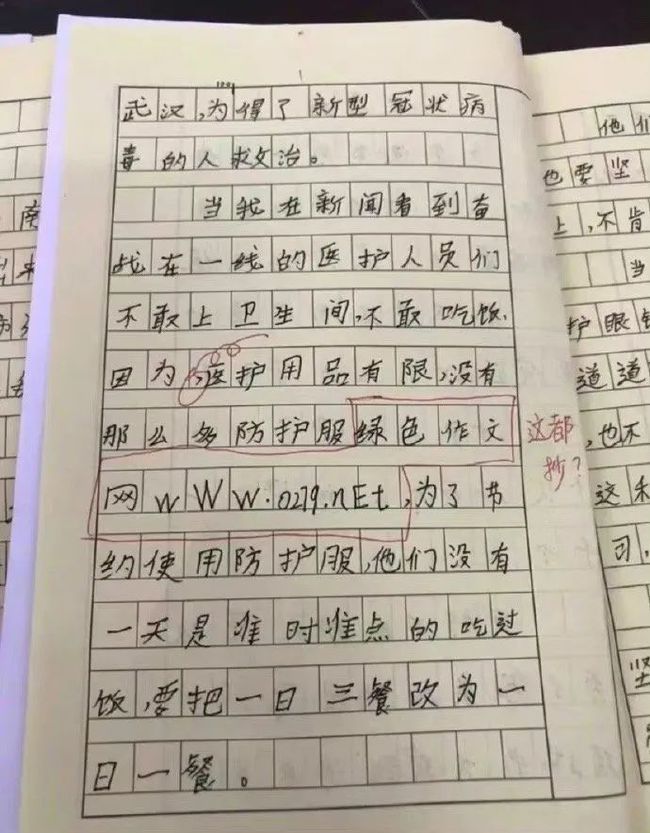 武汉,为得了新型冠状病
毒的人求文治。
当我在新闻看到奋
战在一线的医护人员们
不敢上卫生间,不敢吃饭.
因为,医护用品有限,没有
那么多防护服绿色作文
网wWw.0279.nEt,为了节
约使用防护服,他们没有
一天是准时准点的吃过
饭,要把一日三餐改为一
日一餐。
这都
抄?
他们
也要坚
上,不肯
当
护眼镜
道道
,也不
这和
司,
坚